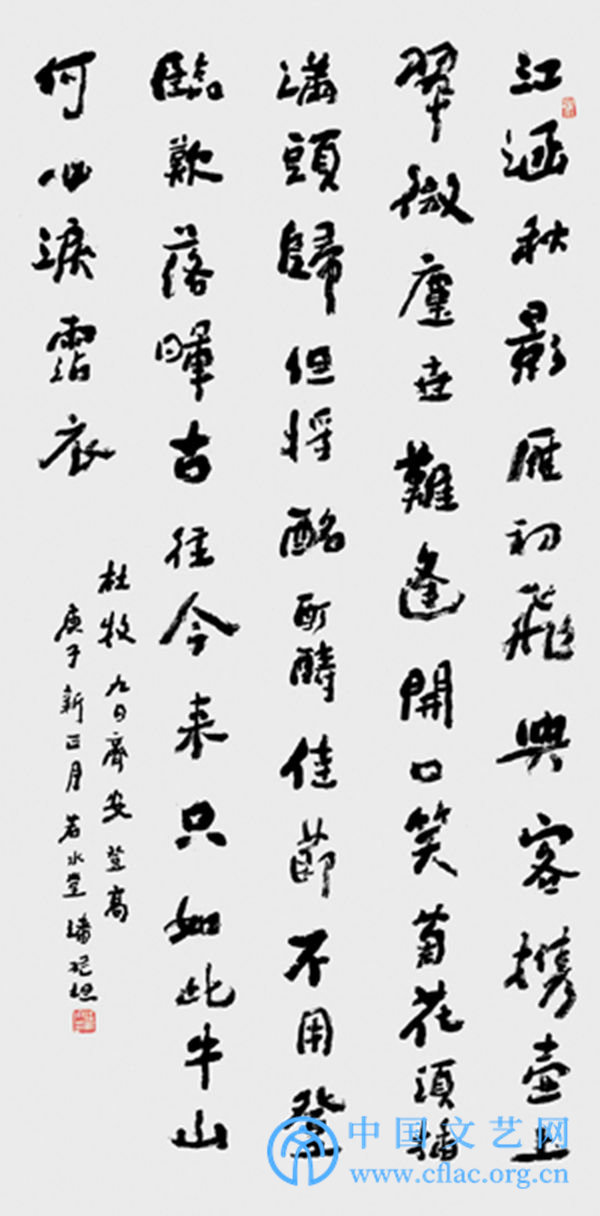 江涵秋影雁初飛與客攜壺上
翠微塵世難逢開口笑菊花頭插
滿頭歸但將酩酊醻佳節不用登
臨歎落暉古往今来只如此牛山
何必淚霑衣
杜牧九日齊安登高
庚子新正月若水堂
中国文艺网
www.cflac.org.cn